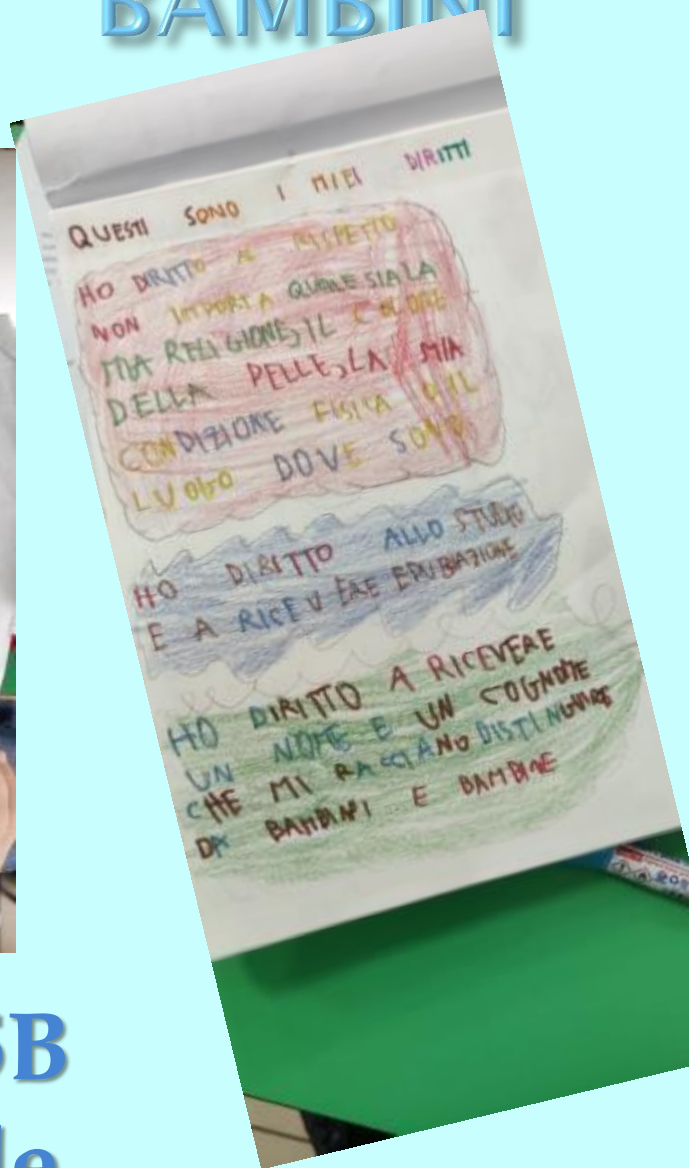 BAMBINI
QUESTI SONO I MIEI DIRITTI
HO DIRITTO AL RISPETTO
NON IMPORTA QUALE SIA LA
MIA RELIGIONE, IL COLORE
DELLA PELLE, LA MIA
CONDIZIONE FISICA O IL
LUOGO DOVE SONO
HO DIRITTO ALLO STUDIO
E A RICEVERE
HO DIRITTO A RICEVERE
UN NOME E UN COGNOME
CHE MI FACCIANO DISTINGUERE
DA BAMBINI E BAMBINE
5B
le